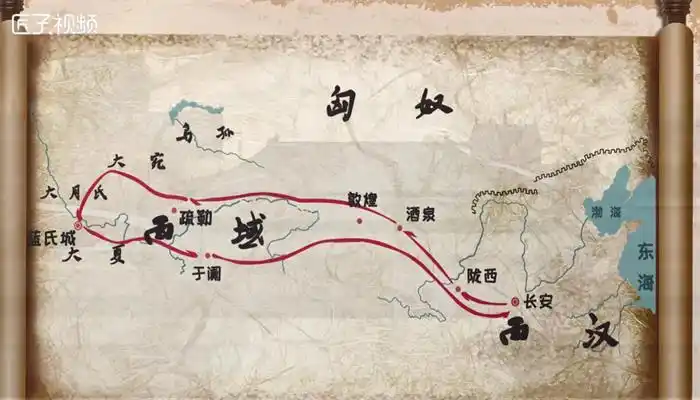 匠子视频
匈奴
乌孙
大宛
大月氏
敦煌
酒泉
疏勒
西域
渤海
蓝氏城
大夏
于阗
东海
陇西
长安
西汉